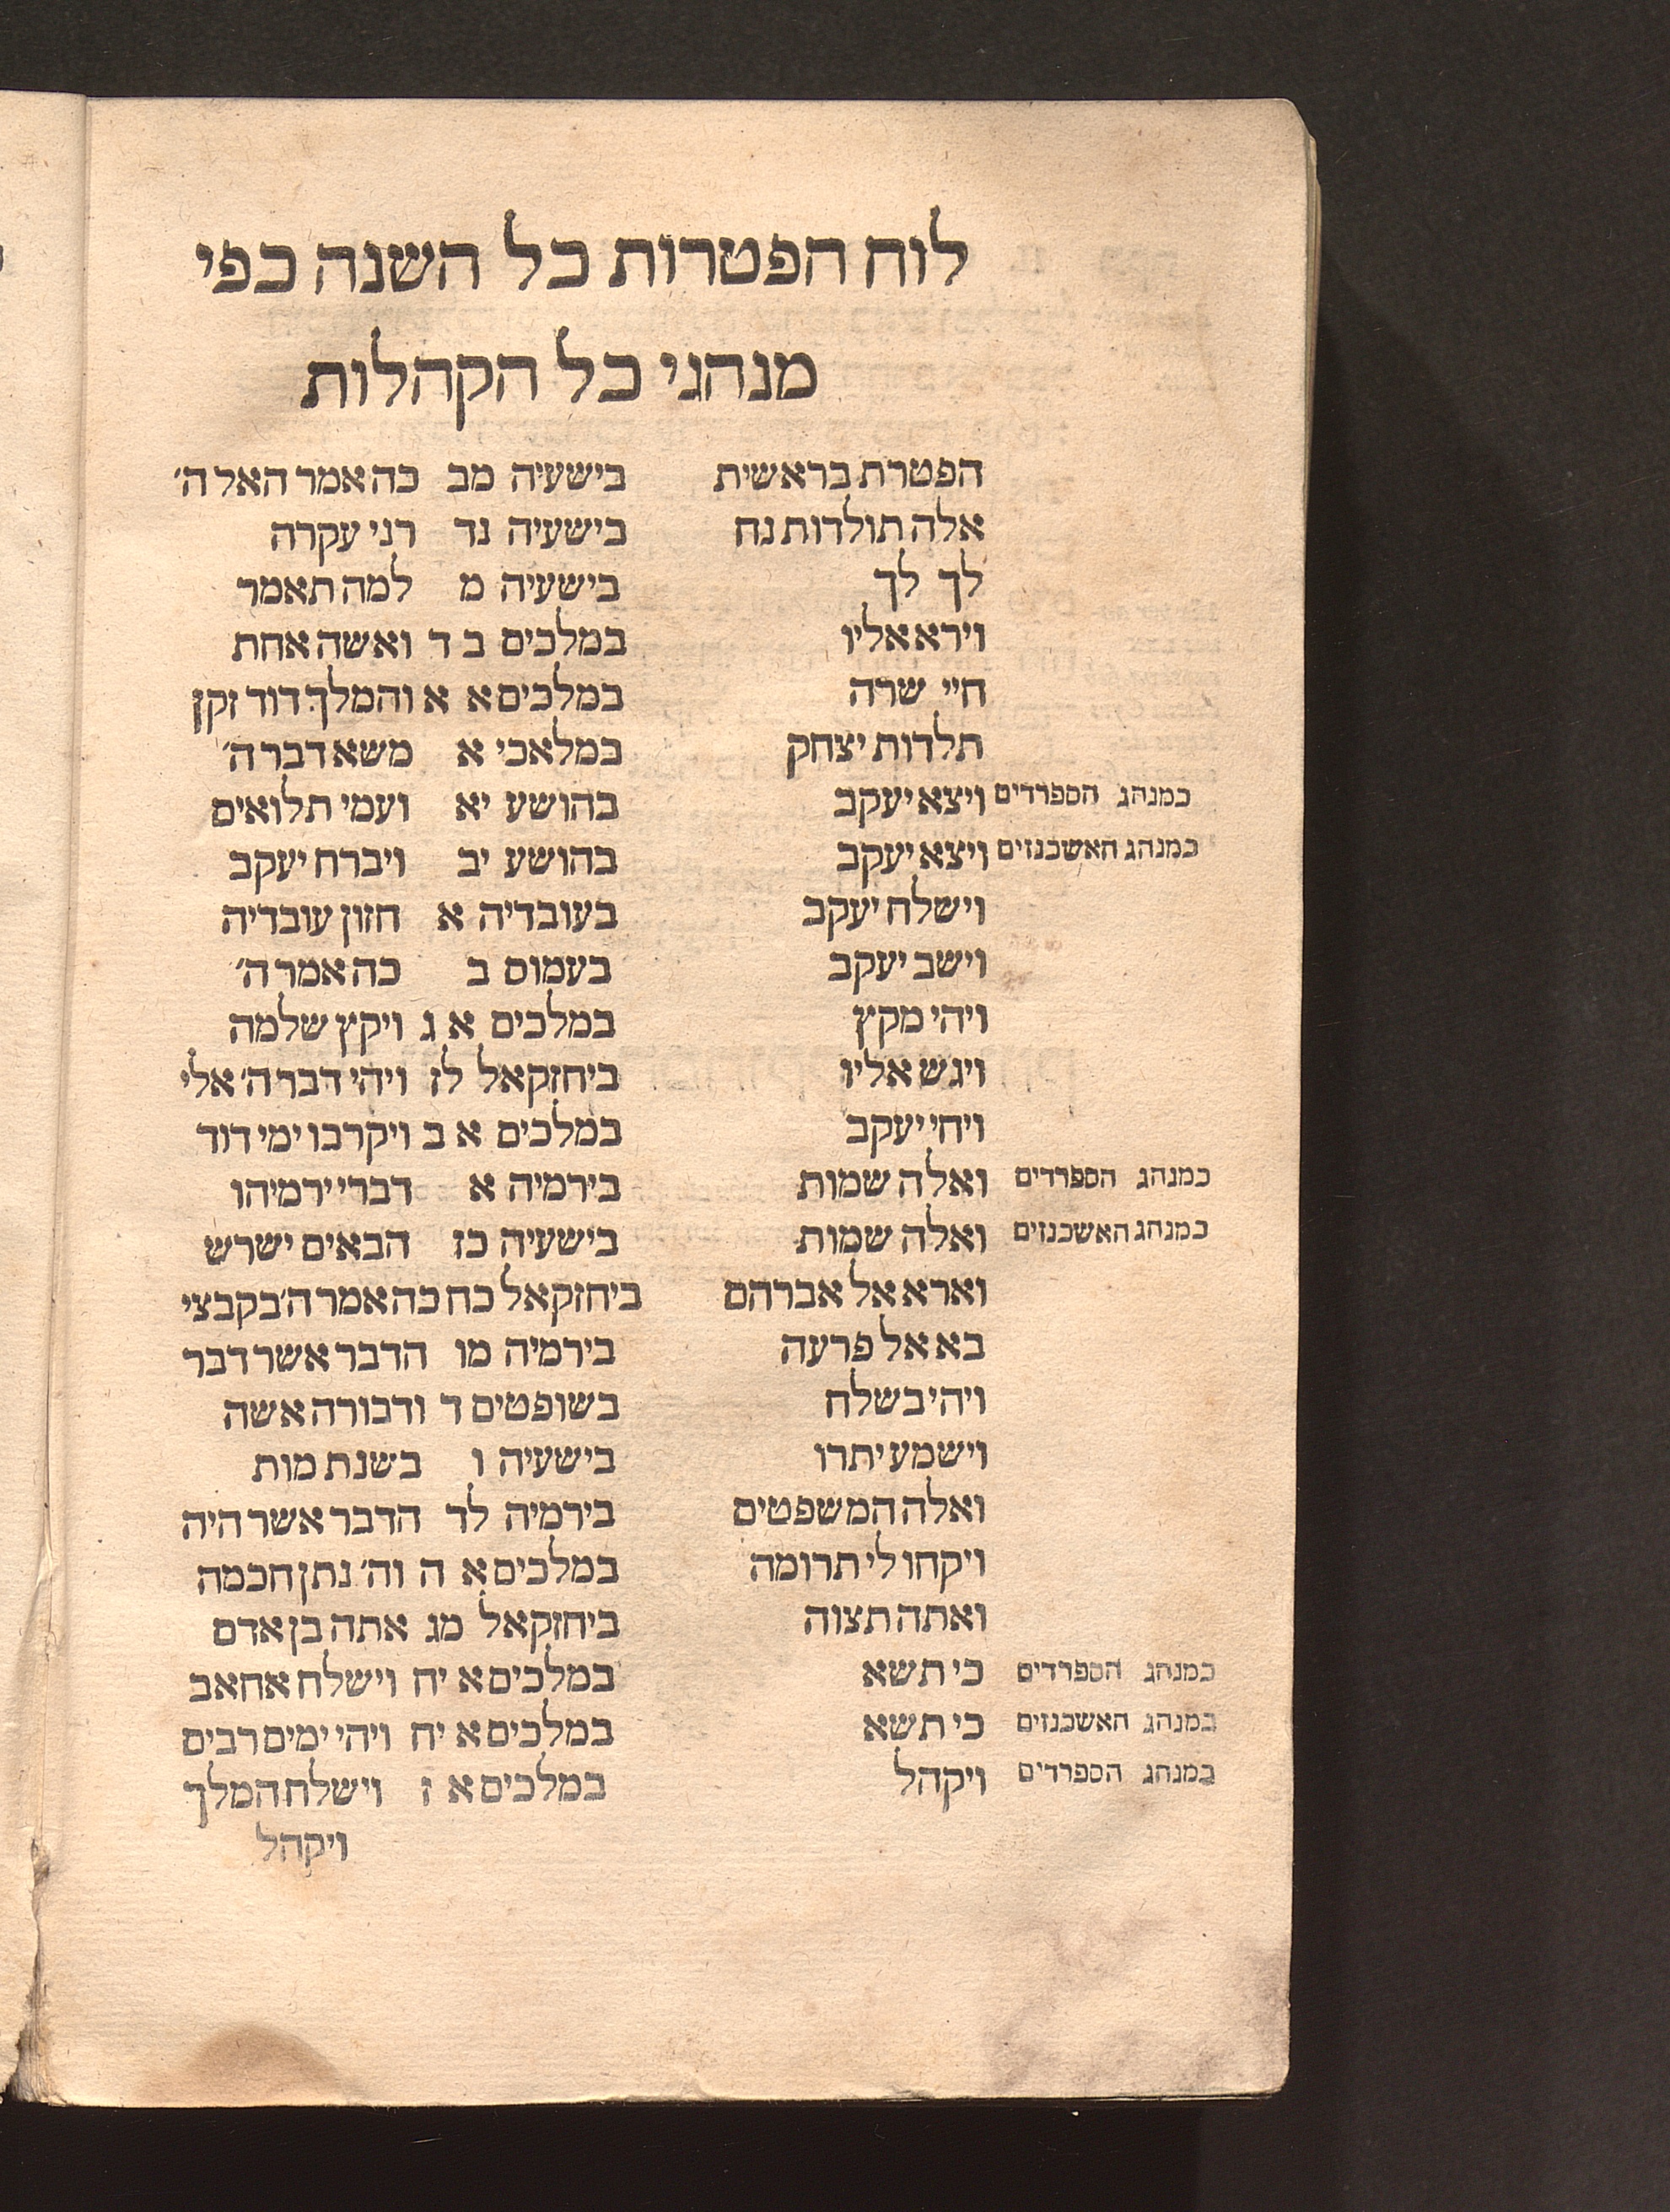 לוח הפטרות כל השנה כפי
מנהגי כל הקהלות
הפטרת בראשית בישעיה מב כה אמר האל ה׳
אלה תולדות נח בישעיה נד רני עקרה
לך לך בישעיה מ למה תאמר
וירא אליו במלכים ב ד ואשה אחת
חיי שרה במלכים א א והמלך דוד זקן
תלדות יצחק במלאכי א משא דבר ה׳
כמנהג הספרדים ויצא יעקב בהושע יא ועמי תלואים
כמנהג האשכנזים ויצא יעקב בהושע יב ויברח יעקב
וישלח יעקב בעובדיה א חזון עובדיה
וישב יעקב בעמוס ב כה אמר ה׳
ויהי מקץ במלכים א ג ויקץ שלמה
ויגש אליו ביחזקאל לז ויהי דבר ה׳ אלי
ויחי יעקב במלכים א ב ויקרבו ימי דוד
כמנהג הספרדים ואלה שמות בירמיה א דברי ירמיהו
כמנהג האשכנזים ואלה שמות בישעיה כז הבאים ישרש
וארא אל אברהם ביחזקאל כח כה אמר ה׳ בקבצי
בא אל פרעה בירמיה מו הדבר אשר דבר
ויהי בשלח בשופטים ד ודבורה אשה
וישמע יתרו בישעיה ו בשנת מות
ואלה המשפטים בירמיה לד הדבר אשר היה
ויקחו לי תרומה במלכים א ה וה׳ נתן חכמה
ואתה תצוה ביחזקאל מג אתה בן אדם
כמנהג הספרדים כי תשא במלכים א יח וישלח אחאב
במנהג האשכנזים כי תשא במלכים א יח ויהי ימים רבים
במנהג הספרדים ויקהל במלכים א ז וישלח המלך
ויקהל